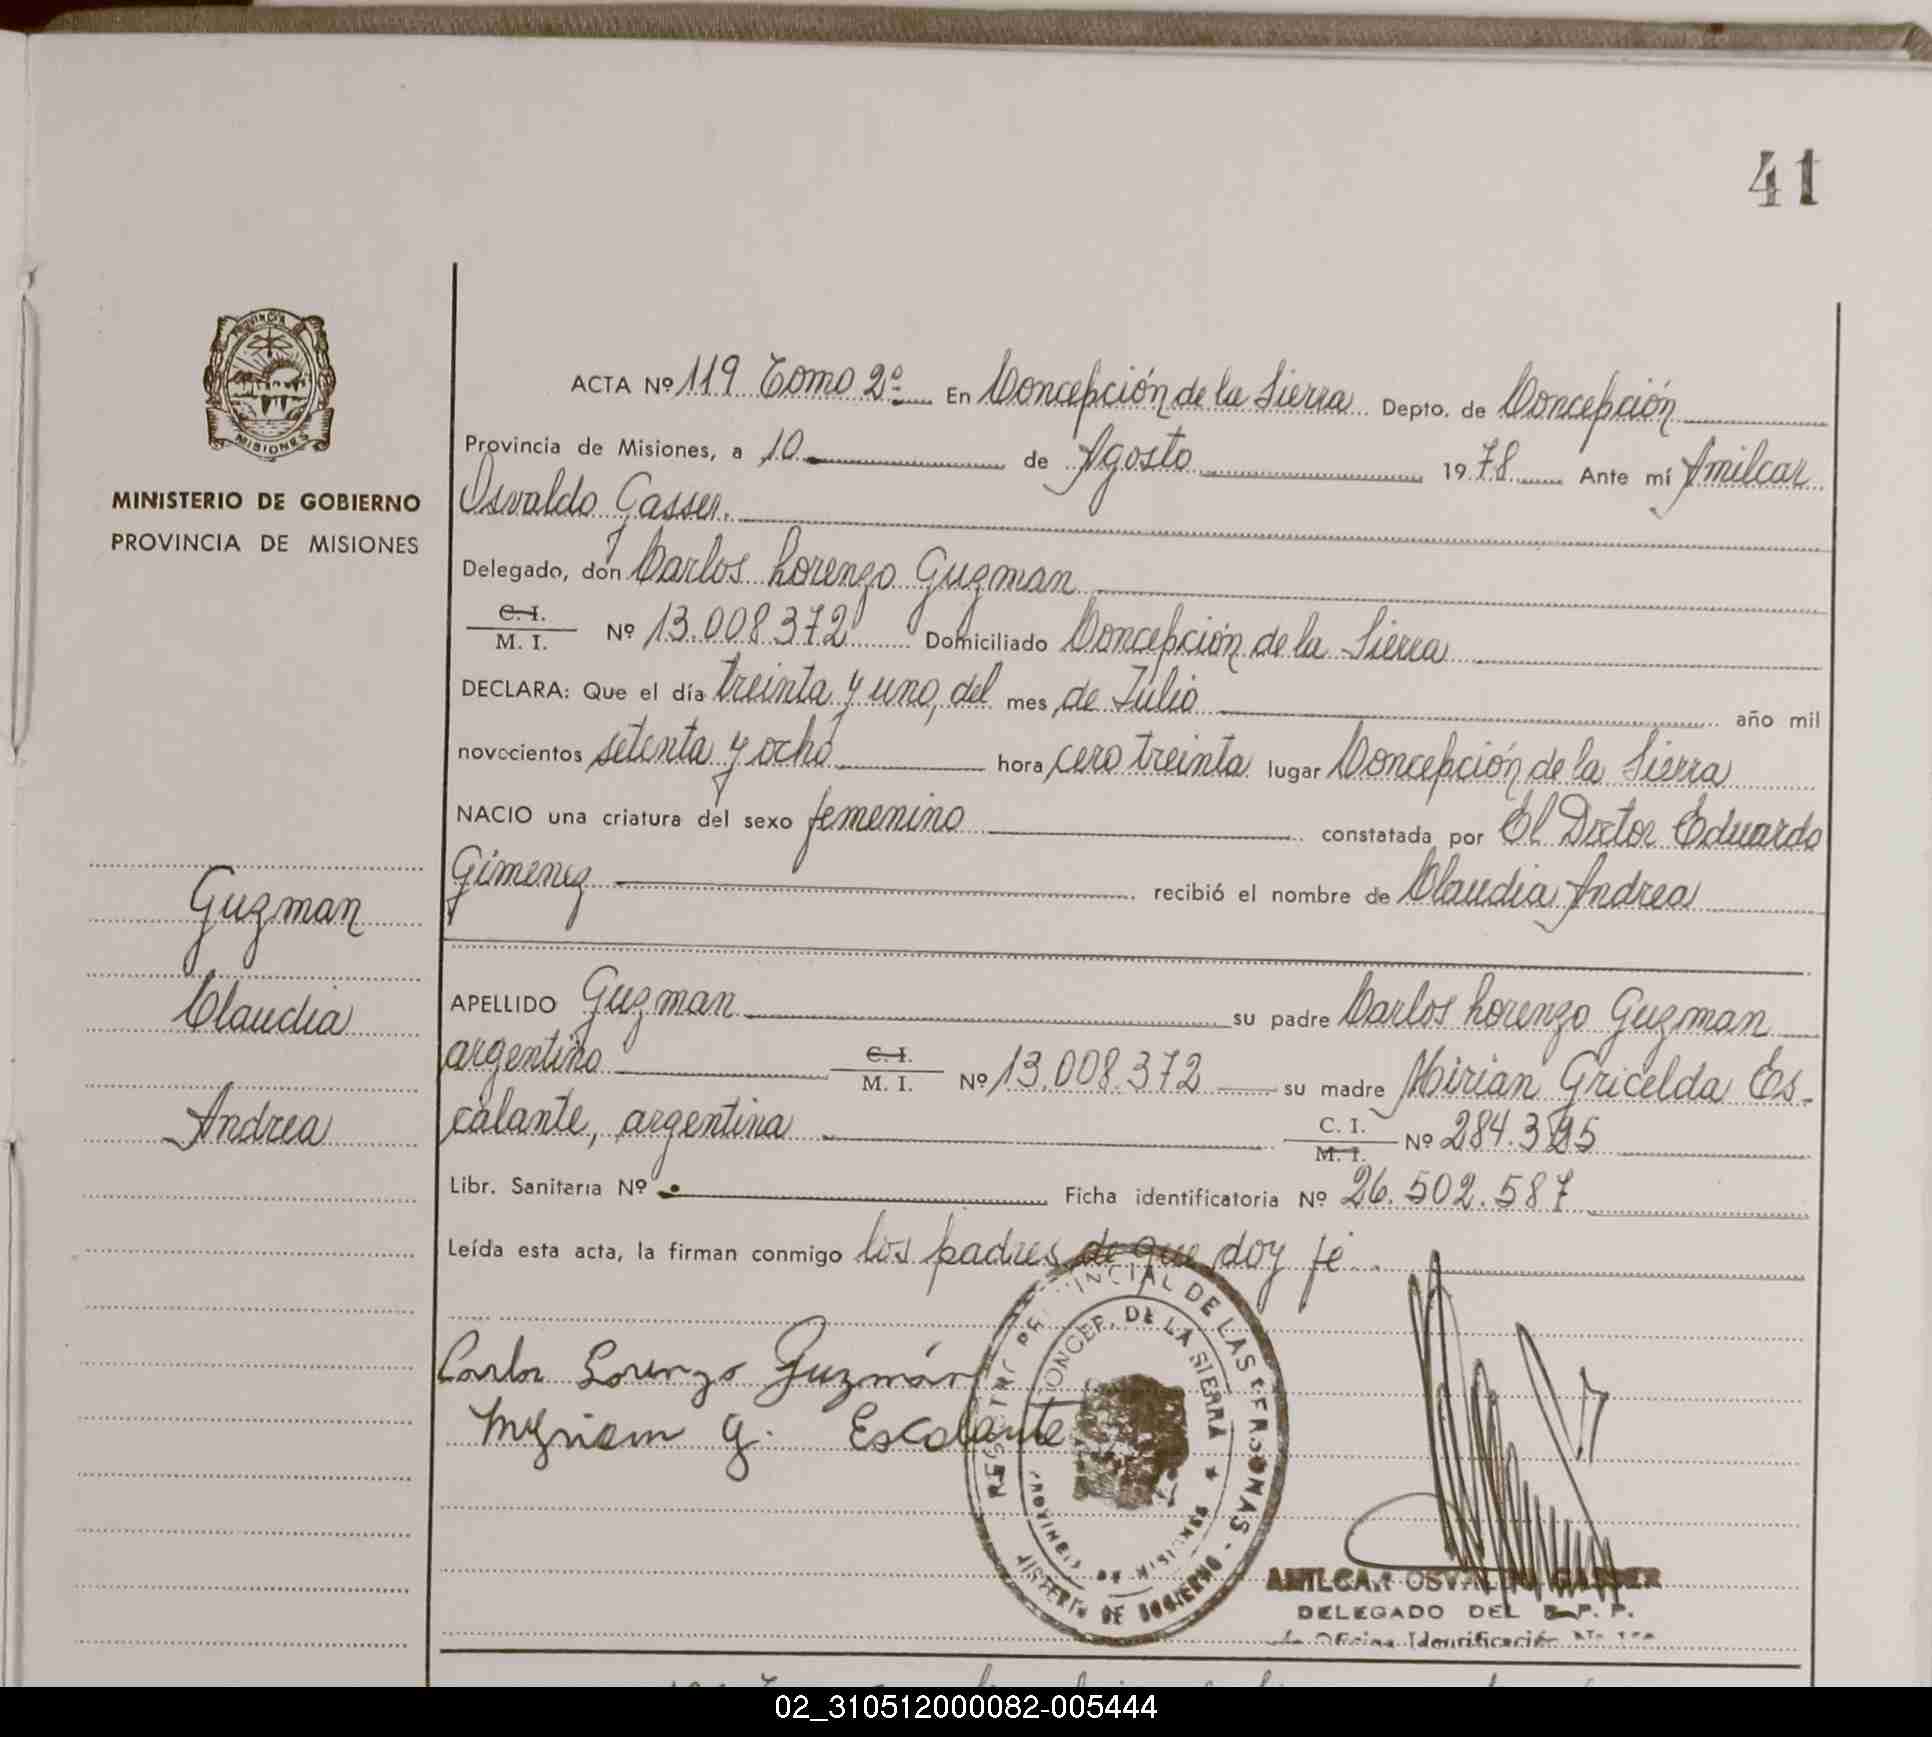 41
PROVINCIA
MISIONES
MINISTERIO DE GOBIERNO
PROVINCIA DE MISIONES
Guzman
Claudia
Andrea
ACTA Nº 119 Tomo 2º En Concepción de la Sierra Depto. de Concepción
Provincia de Misiones, a 10 de Agosto 1978 Ante mí Amilcar
Osvaldo Gasser.
Delegado, don Carlos Lorenzo Guzman
C. I.
M. I. Nº 13.008.372 Domiciliado Concepción de la Sierra
DECLARA: Que el día treinta y uno, del mes de Julio año mil
novecientos setenta y ocho hora cero treinta lugar Concepción de la Sierra
NACIO una criatura del sexo femenino constatada por El Doctor Eduardo
Gimenez recibió el nombre de Claudia Andrea
APELLIDO Guzman su padre Carlos Lorenzo Guzman
argentino C. I. M. I. Nº 13.008.372 su madre Mirian Gricelda Es-
calante, argentina C. I. M. I. Nº 284.395
Libr. Sanitaria Nº Ficha identificatoria Nº 26.502.587
Leída esta acta, la firman conmigo los padres de que doy fé.
Carlos Lorenzo Guzmán
Myriam G. Escalante
CONCEP. DE LA SIERRA
PROVINCIA DE MISIONES
DE GOBIERNO
AMILCAR OSVALDO GASSER
DELEGADO DEL R. P. P.
Oficina Identificación
02_310512000082-005444